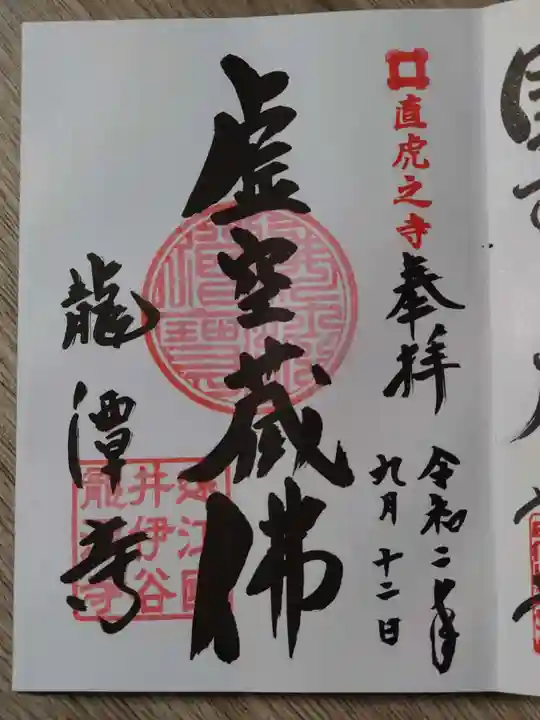 直虎之寺
奉拝
令和二年
九月十二日
虚空蔵佛
龍潭寺
遠江國
井伊谷
龍潭寺